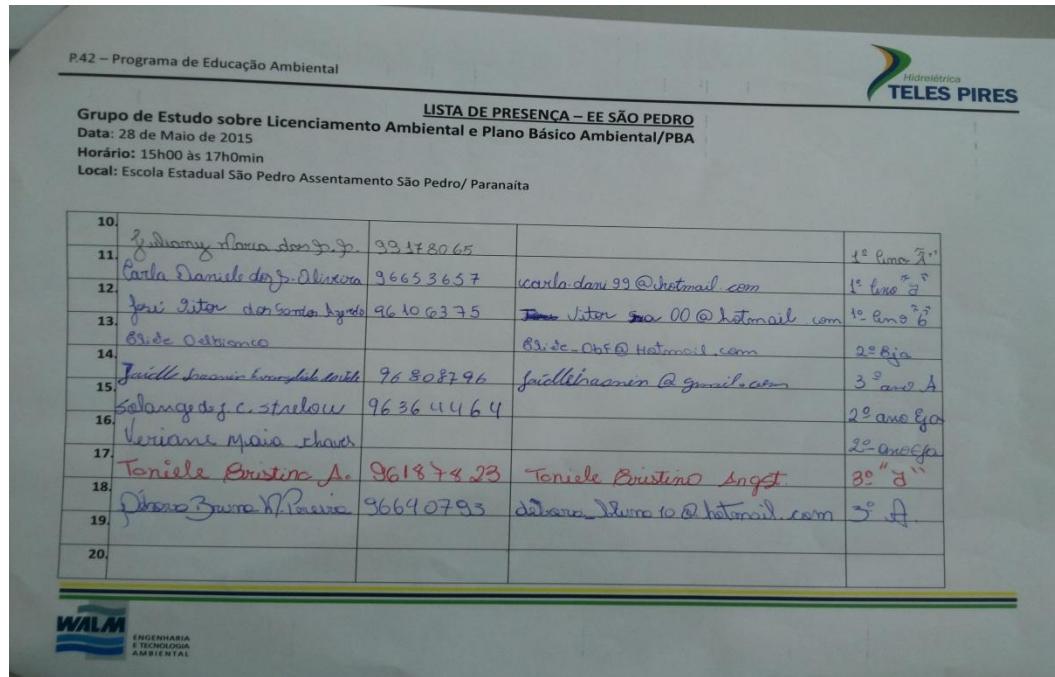 P.42 – Programa de Educação Ambiental
Hidrelétrica
TELES PIRES
LISTA DE PRESENÇA – EE SÃO PEDRO
Grupo de Estudo sobre Licenciamento Ambiental e Plano Básico Ambiental/PBA
Data: 28 de Maio de 2015
Horário: 15h00 às 17h0min
Local: Escola Estadual São Pedro Assentamento São Pedro/ Paranaíta
10.
Maria dos 99178065 1º
11.
Carla Daniele dos S. Oliveira 96653657 carla.dani99@hotmail.com 1º
12.
José Vitor dos Santos 96106375 Vitor 00@hotmail.com 1º
13.
Delbianco Hotmail.com 2º Eja
14.
96808796 @gmail.com 3º ano A
15.
Solange de J. C. Strelow 96364464 2º ano Eja
16.
Veriane Maia Chaves 2º ano Eja
17.
Toniele Cristina A. 96187823 Toniele Cristina Angst. 3º
18.
Bruna Pereira 96640793 10@hotmail.com 3º A
19.
20.
WALM
ENGENHARIA
E TECNOLOGIA
AMBIENTAL